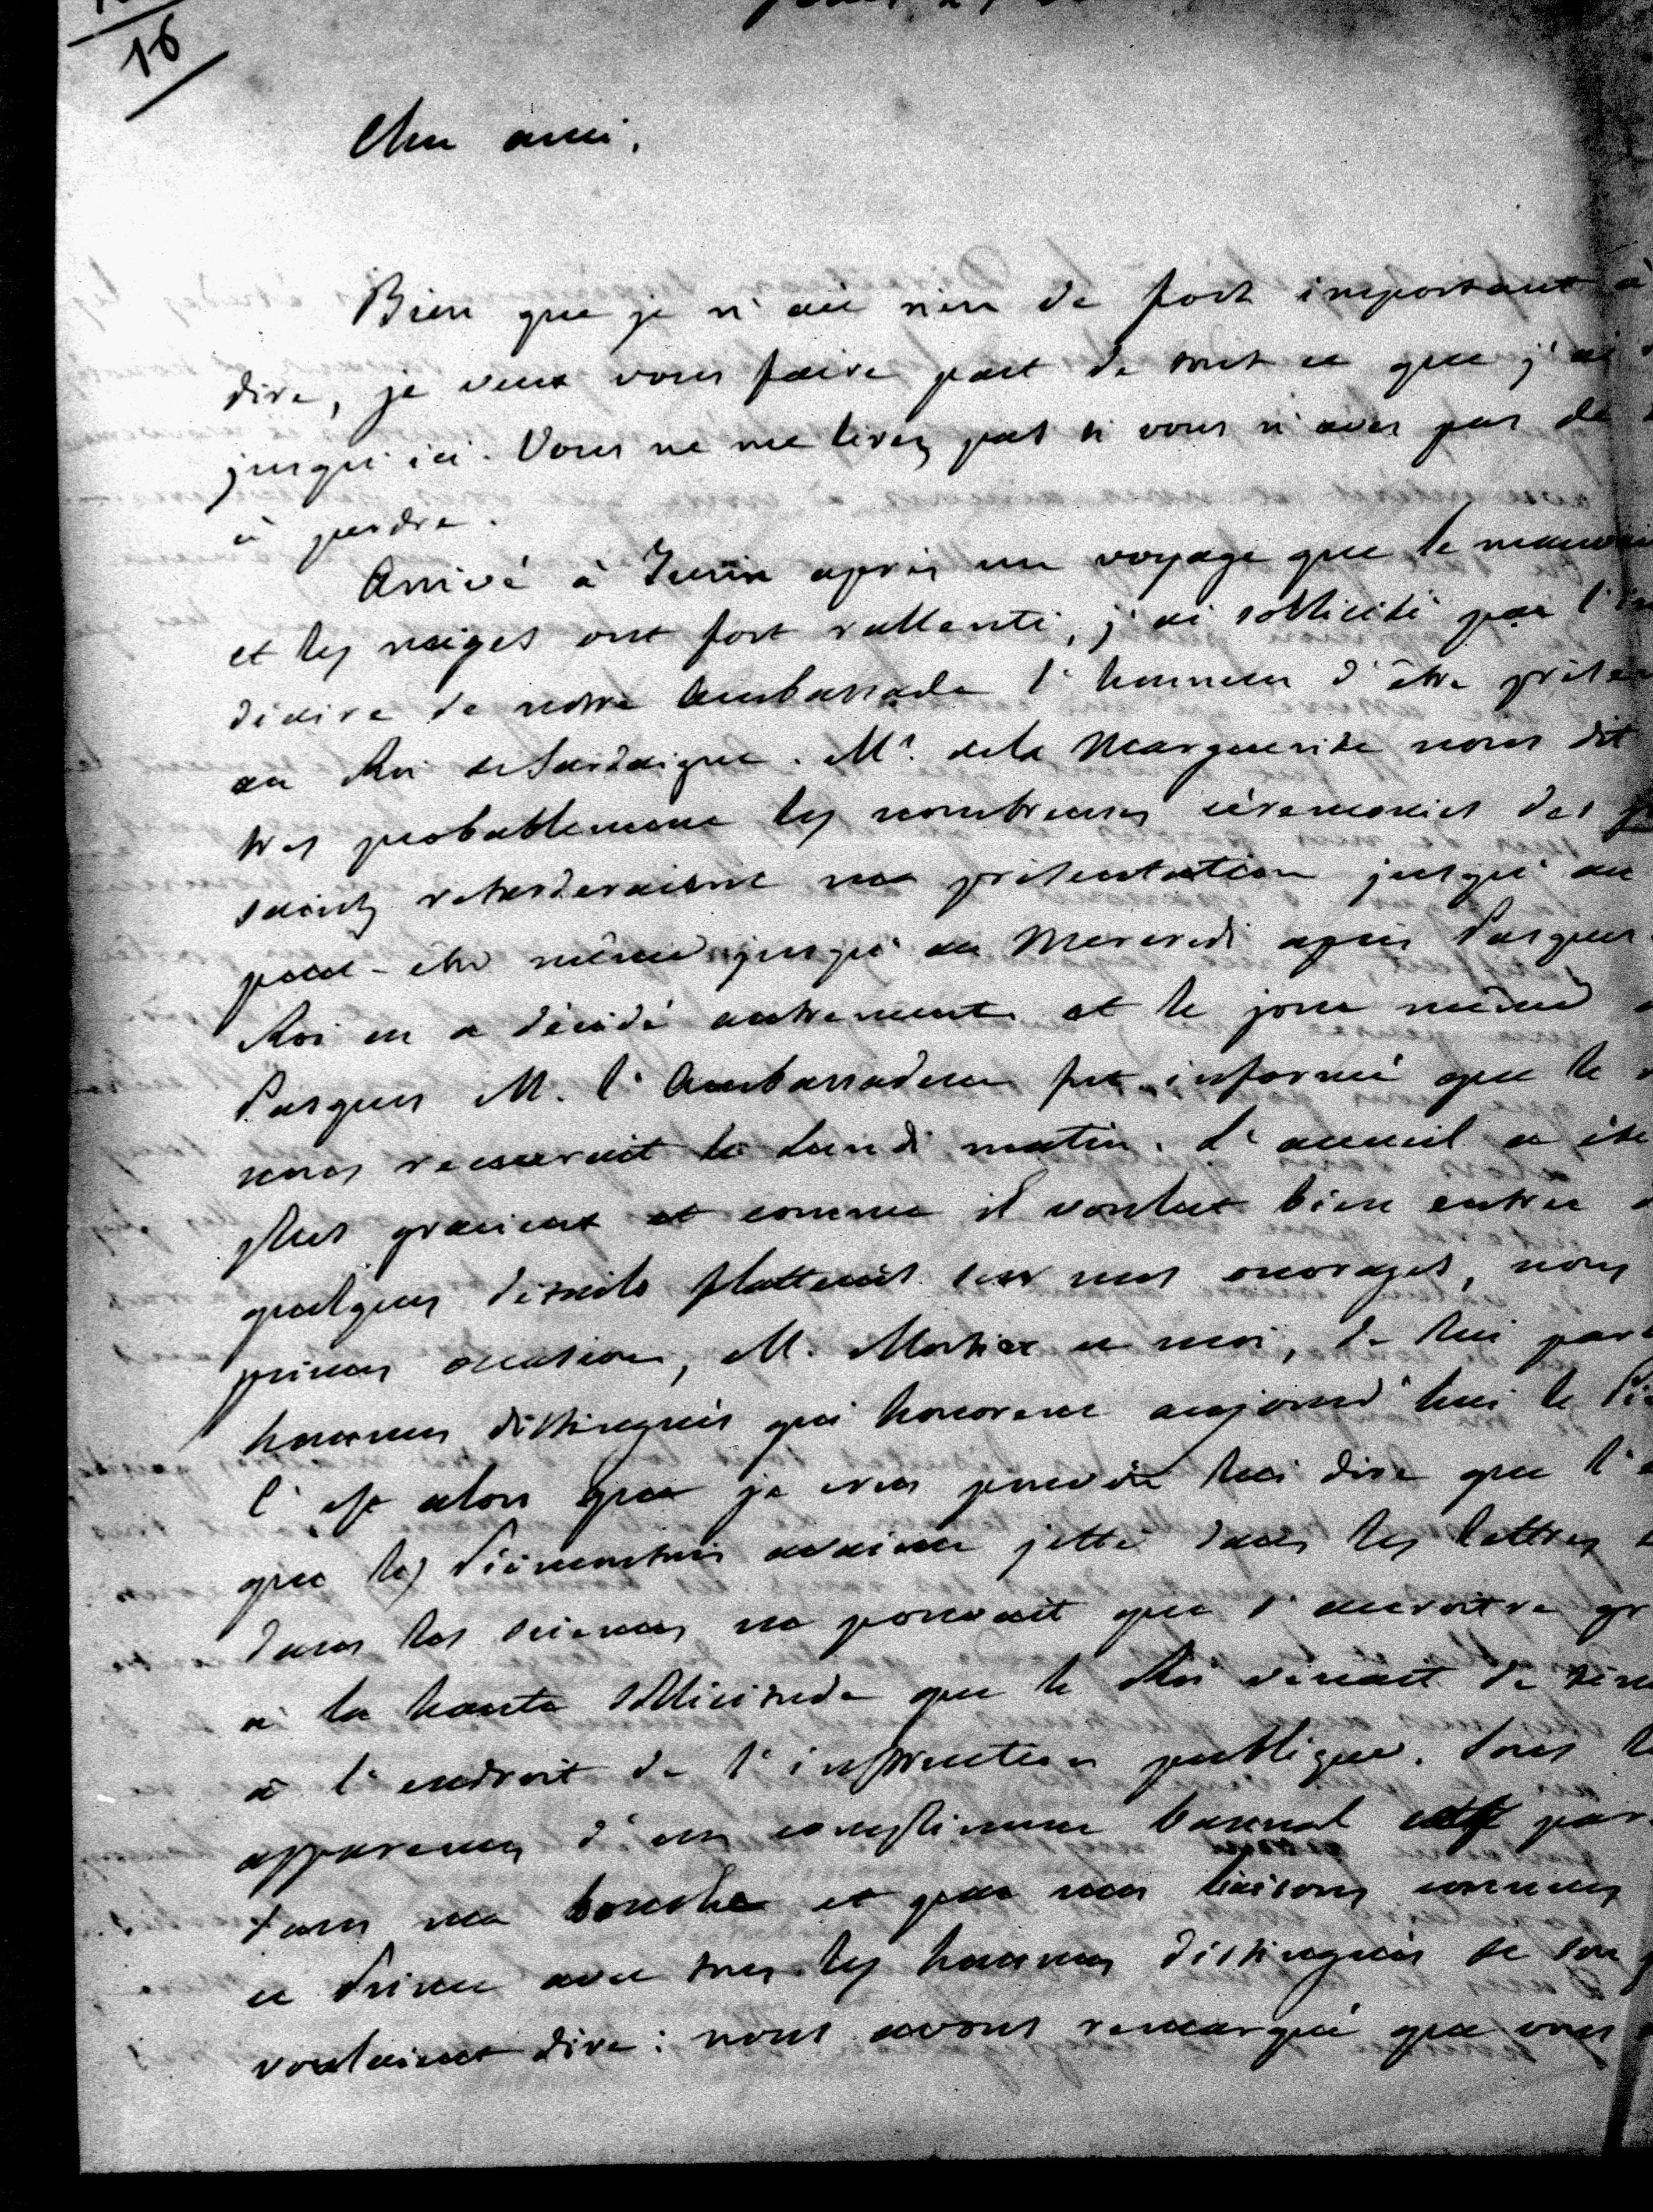 16
Cher ami,
Bien que je n'aie rien de fort important à
dire, je veux vous faire part de tout ce que j'ai
jusqu'ici. Vous ne me lirez pas si vous n'avez pas de
à perdre.
Arrivé à Turin après un voyage que le mauvai
et les neiges ont fort rallenti, j'ai sollicité par l'in
diaire de notre Ambassade l'honneur d'être présen
au Roi de Sardaigne. Mr. de la Marguerite nous dit
très probablement les nombreuses cérémonies des
saints retarderaient ma présentation jusqu'au
peut-être même jusqu'au Mercredi après Pasques.
Roi en a décidé autrement et le jour même
Pasques M. l'Ambassadeur fut informé que le
nous recevrait le Lundi matin. L'accueil a été
plus gracieux et comme il voulut bien entrer
quelques détails flatteurs sur mes ouvrages, nous
primes occasion, M. Mortier et moi, de lui parl
hommes distingués qui honorent aujourd'hui le Pié
C'est alors que je crus pouvoir lui dire que l'é
que les Piémontais avaient jetté dans les lettres
dans les sciences ne pouvait que s'accroitre gr
à la haute sollicitude que le Roi venait de
à l'endroit de l'instruction publique. Sous le
apparences d'un compliment bannal par
dans ma bouche et que mes liaisons connues
ce Prince avec tous les hommes distingués de son
voulaient dire: nous avons remarqué que vous